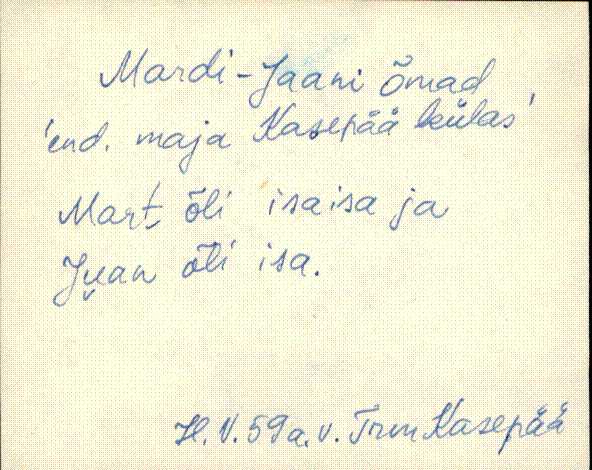 Mardi-Jaani õmad
'end. maja Kasepää külas'
Mart õli isaisa ja
Jyan õli isa.
H. V. 59 a. v. Trm Kasepää